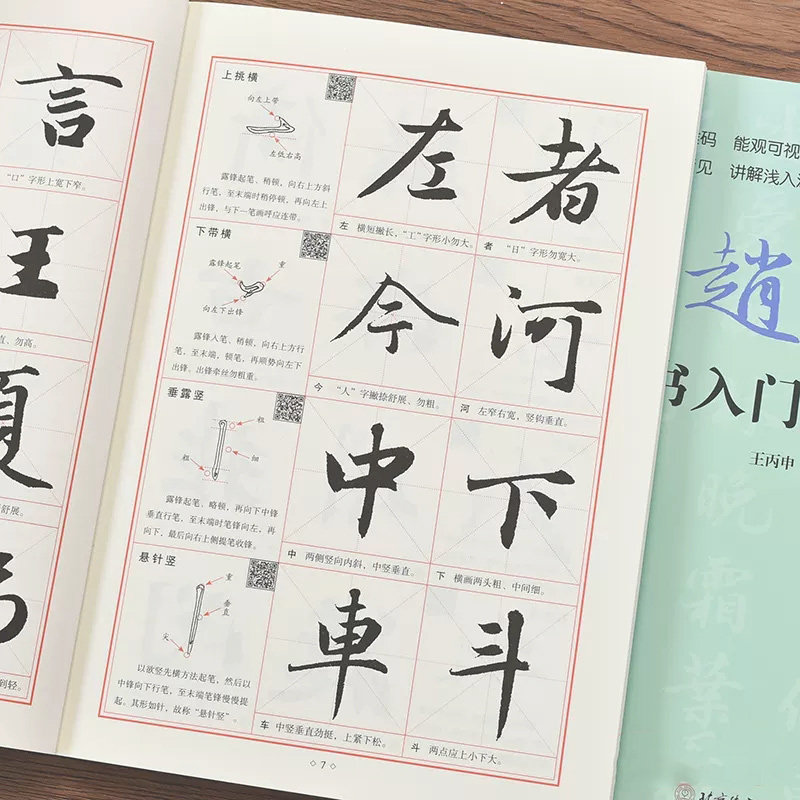 言
“口”字形上宽下窄。
王
直、勿高。
舒展。
到轻。
上挑横
向左上带
左低右高
露锋起笔、稍顿，向右上方斜
行笔，至末端时稍停顿，再向左上
出锋，与下一笔画呼应连带。
左
左 横短撇长，“工”字形小勿大。
者
者 “日”字形勿宽大。
下带横
露锋起笔
重
向左下出锋
露锋入笔、稍顿，向右上方行
笔，至末端，顿笔，再顺势向左下
出锋。出锋牵丝勿粗重。
今
今 “人”字撇捺舒展、勿粗。
河
河 左窄右宽，竖钩垂直。
垂露竖
粗
粗
细
露锋起笔、略顿，再向下中锋
垂直行笔，至末端时笔锋向左，再
向下，最后向右上侧提笔收锋。
中
中 两侧竖向内斜，中竖垂直。
下
下 横画两头粗、中间细。
悬针竖
重
垂直
尖
以欲竖先横方法起笔，然后以
中锋向下行笔，至末端笔锋慢慢提
起。其形如针，故称“悬针竖”。
車
车 中竖垂直劲挺，上紧下松。
斗
斗 两点应上小下大。
◇7◇
码 能观可视
见 讲解浅入
趙
书入门
王丙申